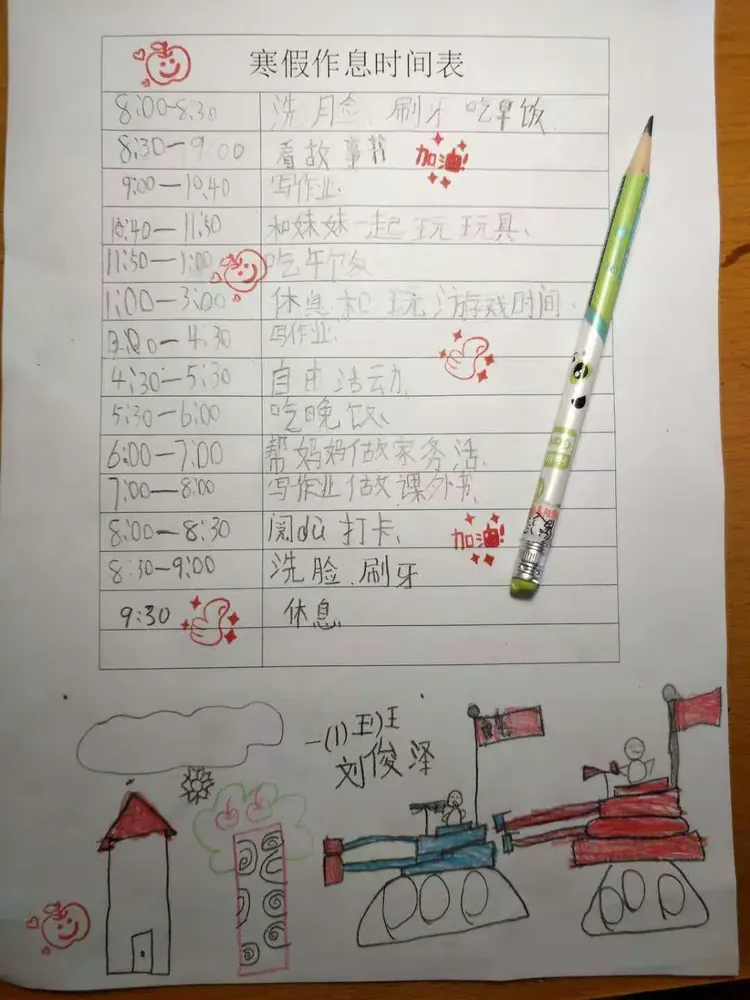 寒假作息时间表
8:00-8:30 洗脸、刷牙 吃早饭
8:30—9:00 看故事书 加油!
9:00—10:40 写作业.
10:40—11:50 和妹妹一起玩玩具、
11:50—1:00 吃午饭
1:00—3:00 休息和玩游戏时间.
3:00—4:30 写作业.
4:30—5:30 自由活动
5:30—6:00 吃晚饭、
6:00—7:00 帮妈妈做家务活.
7:00—8:00 写作业做课外书
8:00—8:30 阅dú打卡、 加油!
8:30—9:00 洗脸、刷牙
9:30 休息
一(1)王班
刘俊泽